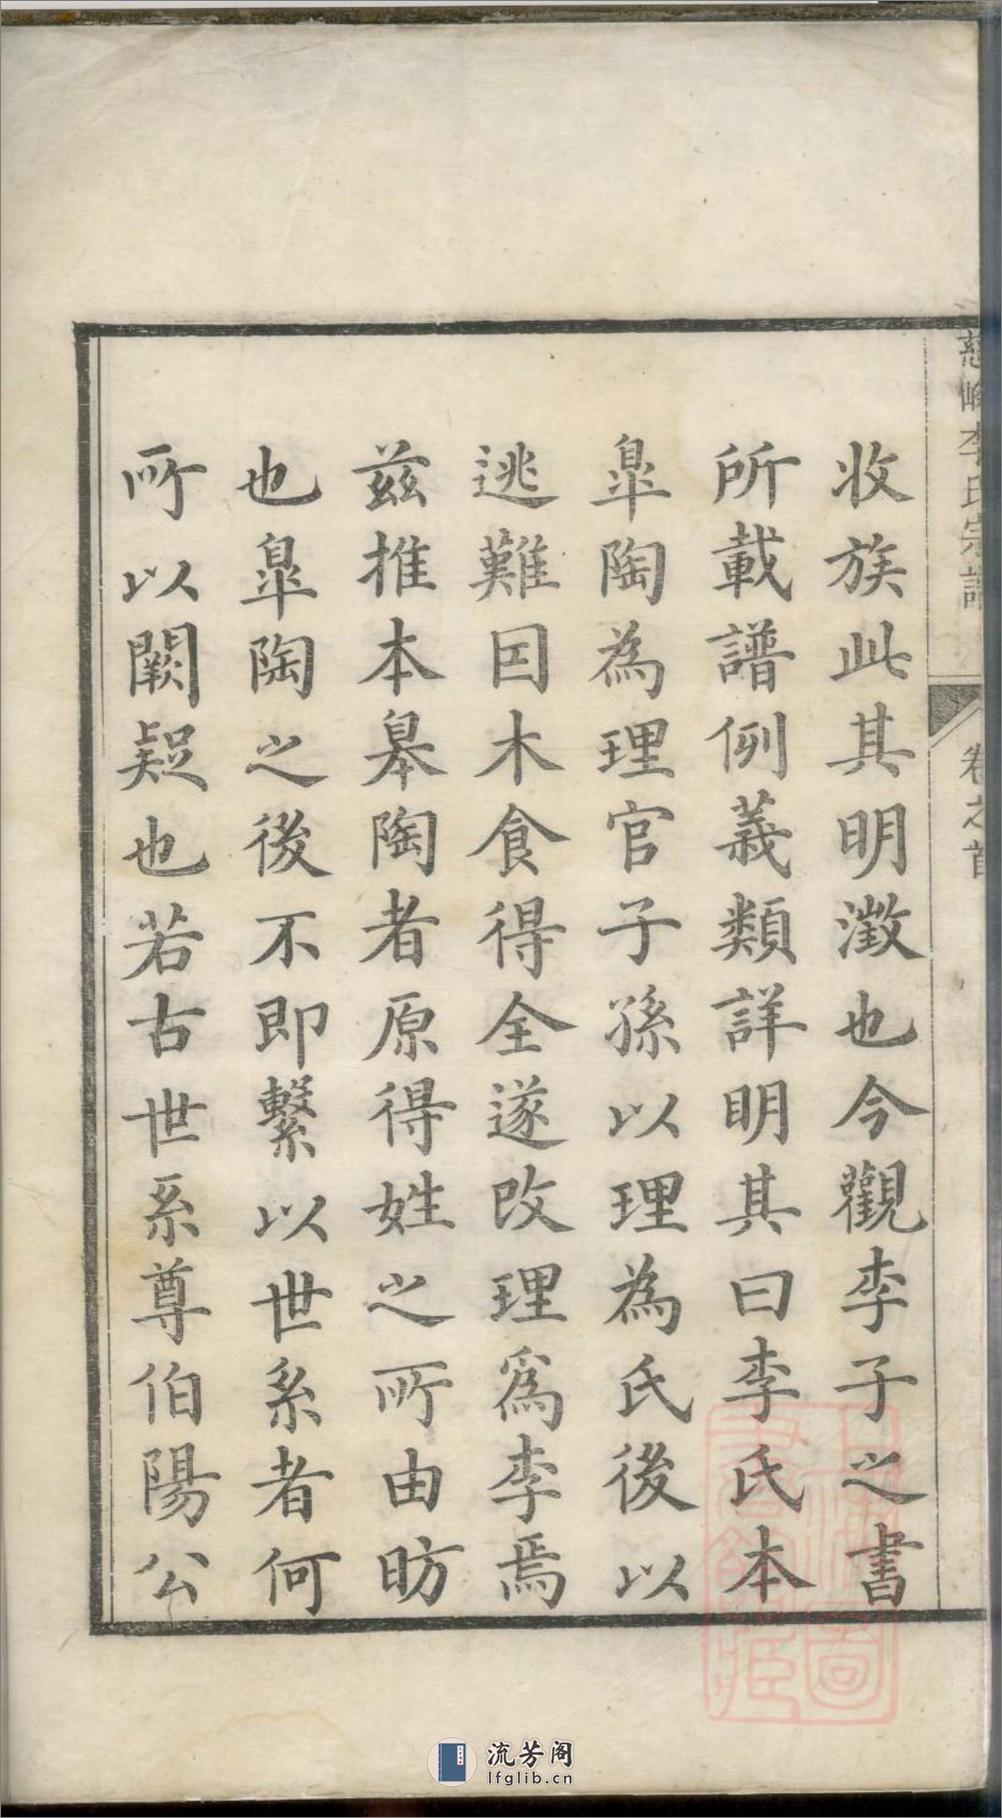 慈峰李氏宗譜
卷之首
收族此其明澂也今觀李子之書
所載譜例義類詳明其曰李氏本
臯陶為理官子孫以理為氏後以
逃難因木食得全遂改理爲李焉
兹推本皋陶者原得姓之所由昉
也臯陶之後不即繫以世系者何
所以闕疑也若古世系尊伯陽公
流芳阁
lfglib.cn